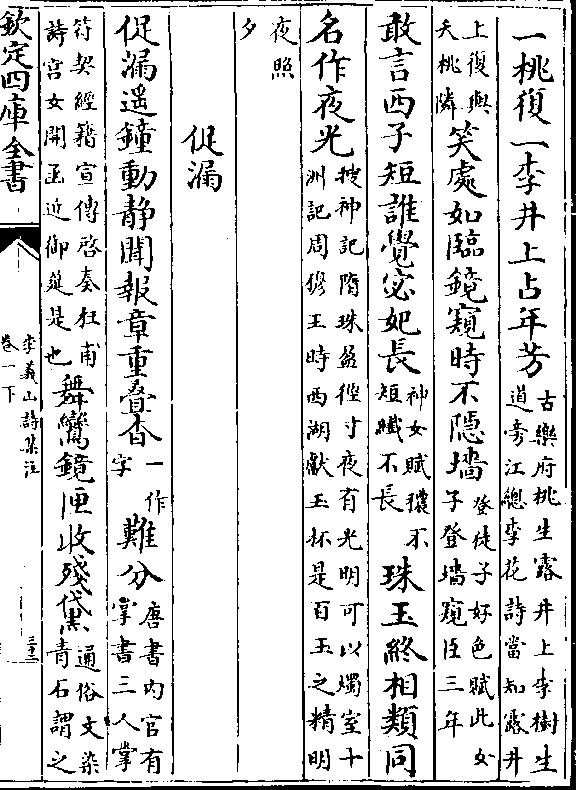 一桃復一李井上占年芳古樂府桃生露井上李樹生道旁江總李花詩當知露井
上復與夭桃隣笑處如臨鏡窺時不隱墻登徒子好色賦此女子登墻窺臣三年
敢言西子短誰覺宓妃長神女賦穠不短纖不長珠玉終相類同
名作夜光搜神記隋珠盈徑寸夜有光明可以燭室十洲記周穆王時西湖獻玉杯是百玉之精明
夜照夕
促漏
促漏遥鐘動静聞報章重疊杳一作字難分唐書内官有掌書三人掌
符契經籍宣傳啓奏杜甫詩宫女開函近御筵是也舞鸞鏡匣收殘黛通俗文染青石謂之
欽定四庫全書
李義山詩集注
卷一下